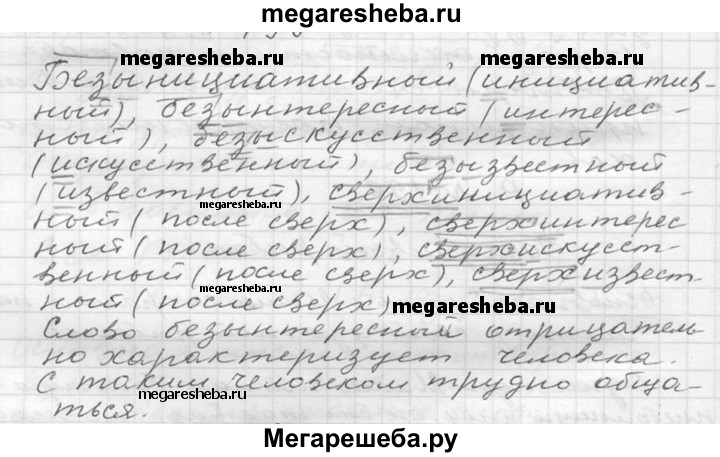 megaresheba.ru
megaresheba.ru megaresheba.ru
Безынициативный (инициатив-
ный), безынтересный (интерес-
ный), безыскусственный
(искусственный), безызвестный
(известный), сверхинициатив-
ный (после сверх), сверхинтерес
ный (после сверх), сверхискусст-
венный (после сверх), сверхизвест-
ный (после сверх)
Слово безынтересный отрицатель
но характеризует человека.
С таким человеком трудно обща-
ться.
megaresheba.ru
megaresheba.ru
megaresheba.ru
megaresheba.ru
megaresheba.ru
Мегарешеба.ру